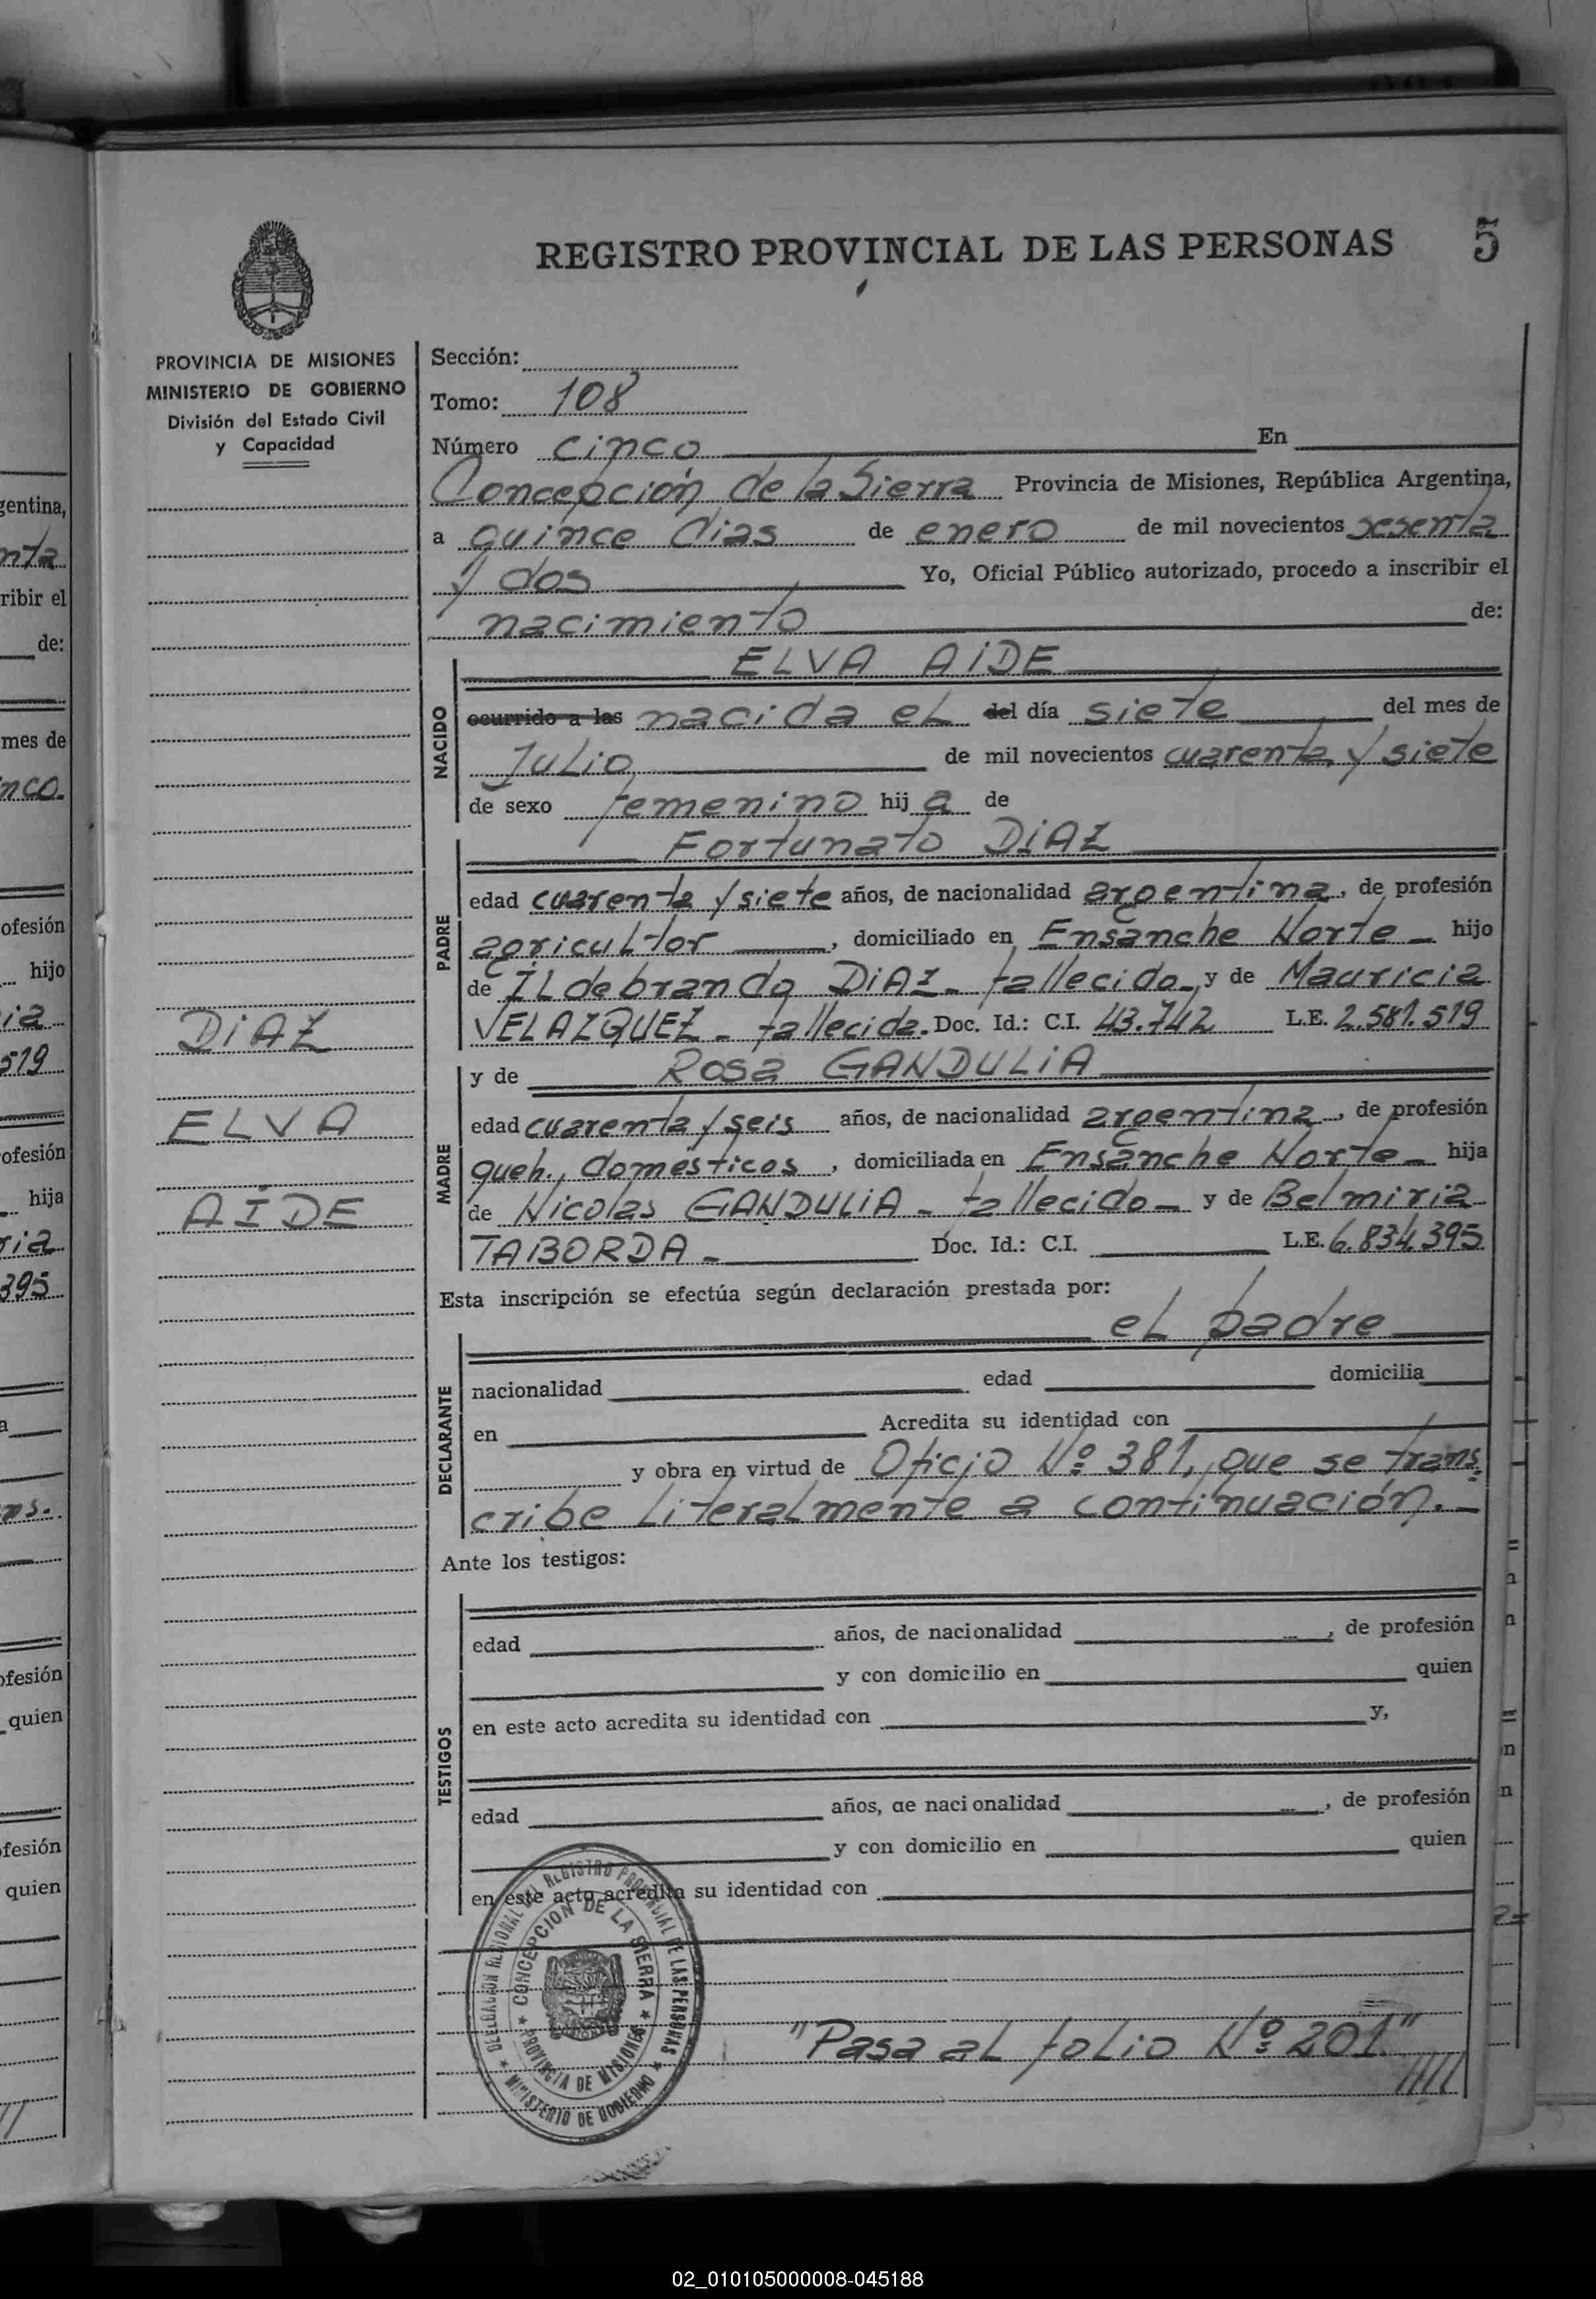 REGISTRO PROVINCIAL DE LAS PERSONAS 5
PROVINCIA DE MISIONES
MINISTERIO DE GOBIERNO
División del Estado Civil
y Capacidad
DIAZ
ELVA
AIDE
Sección:
Tomo: 108
Número cinco En
Concepción de la Sierra Provincia de Misiones, República Argentina,
a quince dias de enero de mil novecientos sesenta
y dos Yo, Oficial Público autorizado, procedo a inscribir el
nacimiento de:
NACIDO
ELVA AIDE
ocurrido a las nacida el del día siete del mes de
Julio de mil novecientos cuarenta y siete
de sexo femenino hij a de
PADRE
Fortunato DIAZ
edad cuarenta y siete años, de nacionalidad argentina, de profesión
agricultor, domiciliado en Ensanche Norte - hijo
de ILdebrando DIAZ - fallecido - y de Mauricia
VELAZQUEZ - fallecida. Doc. Id.: C.I. 43.742 L.E. 2.581.519
MADRE
y de Rosa GANDULIA
edad cuarenta y seis años, de nacionalidad argentina, de profesión
queh. domésticos, domiciliada en Ensanche Norte - hija
de Nicolas GANDULIA - fallecido - y de Belmiria
TABORDA - Doc. Id.: C.I. L.E. 6.834.395
Esta inscripción se efectúa según declaración prestada por:
el padre
DECLARANTE
nacionalidad edad domicilia
en Acredita su identidad con
y obra en virtud de Oficio Nº 381, que se trans
cribe literalmente a continuación. -
Ante los testigos:
TESTIGOS
edad años, de nacionalidad , de profesión
y con domicilio en quien
en este acto acredita su identidad con y,
edad años, de nacionalidad , de profesión
y con domicilio en quien
en este acto acredita su identidad con
DELEGACION REGIONAL DEL REGISTRO PROVINCIAL DE LAS PERSONAS
CONCEPCION DE LA SIERRA
PROVINCIA DE MISIONES
MINISTERIO DE GOBIERNO
"Pasa al folio Nº 201"
gentina,
nta
ribir el
de:
mes de
nco.
ofesión
hijo
ia
519
ofesión
hija
ria
395
a
ns.
ofesión
quien
ofesión
quien
02_010105000008-045188